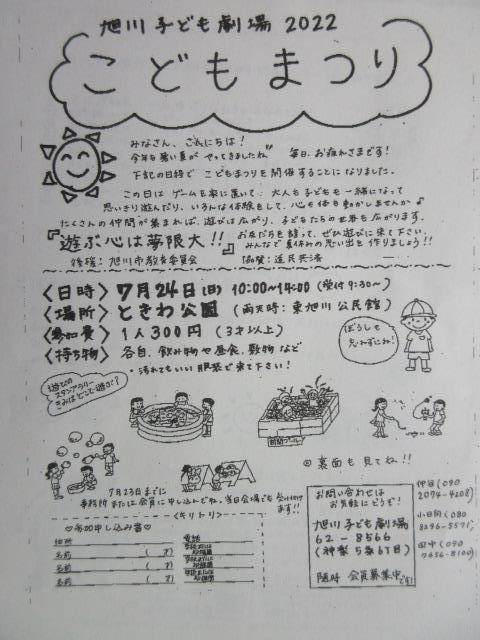 旭川子ども劇場 2022
こどもまつり
みなさん、こんにちは!
今年も暑い夏がやってきましたね 毎日、お疲れさまです!
下記の日時で こどもまつりを開催することになりました。
この日は ゲームを家に置いて、大人も子どもも一緒になって
思いきり遊んだり、いろんな体験をして、心も体も動かしませんか♪
たくさんの仲間が集まれば、遊びは広がり、子どもたちの世界も広がります。
『遊ぶ心は夢限大!!』
お友だちを誘って、ぜひ遊びに来て下さい。
みんなで夏休みの思い出を作りましょう!!
後援:旭川市教育委員会 協賛:道民共済
〈日時〉7月24日(日) 10:00~14:00 (受付 9:30~)
〈場所〉ときわ公園 (雨天時:東旭川公民館)
〈参加費〉1人300円 (3才以上)
〈持ち物〉各自、飲み物や昼食、敷物 など
・汚れてもいい服装で来て下さい!
ぼうしも
忘れずにね!
遊びの
スタンプラリー
きみはどこで遊ぶ?
◎裏面も見てね!!
7月23日までに
事務所または会員に申し込んでね。当日会場でも受け付けます!!
<キリトリ>
♡参加申し込み書♡
住所
電話
名前 ( 才)
学校または
幼稚園
名前 ( 才)
学校または
幼稚園
名前 ( 才)
学校または
幼稚園
お問い合わせは
お気軽にどうぞ!
旭川子ども劇場
62-8566
(神楽5条6丁目)
随時 会員募集中です!
(090
2074-4208)
小日向(080
8296-5571)
田中(090
7656-8100)